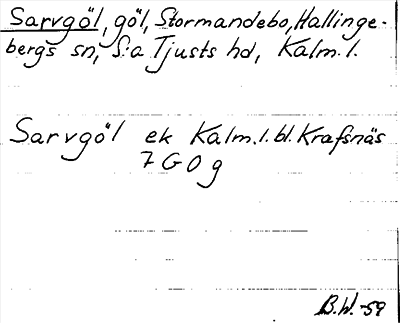 Sarvgöl, göl, Stormandebo, Hallinge-
bergs sn, S:a Tjusts hd, Kalm. l.
Sarvgöl ek Kalm. l. bl. Krafsnäs
7 G O g
B.W. -59